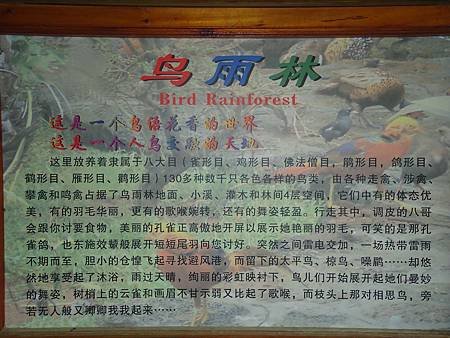 鸟雨林
Bird Rainforest
这是一个鸟语花香的世界
这是一个人鸟爱融的天地
这里放养着隶属于八大目（雀形目、鸡形目、佛法僧目，鹃形目，鸽形目、
鹤形目、雁形目、鹳形目）130多种数千只各色各样的鸟类，由各种走禽、涉禽、
攀禽和鸣禽占据了鸟雨林地面、小溪、灌木和林间4层空间，它们中有的体态优
美，有的羽毛华丽，更有的歌喉婉转，还有的舞姿轻盈。行走其中，调皮的八哥
会跟你讨要食物，美丽的孔雀正高傲地开屏以展示她艳丽的羽毛，可笑的是那孔
雀鸽，也东施效颦般展开短短尾羽向您讨好。突然之间雷电交加，一场热带雷雨
不期而至，胆小的仓惶飞起寻找避风港，而留下的太平鸟、椋鸟、噪鹛……却悠
然地享受起了沐浴，雨过天晴，绚丽的彩虹映衬下，鸟儿们开始展开起她们曼妙
的舞姿，树梢上的云雀和画眉不甘示弱又比起了歌喉，而枝头上那对相思鸟，旁
若无人般又卿卿我我起来……